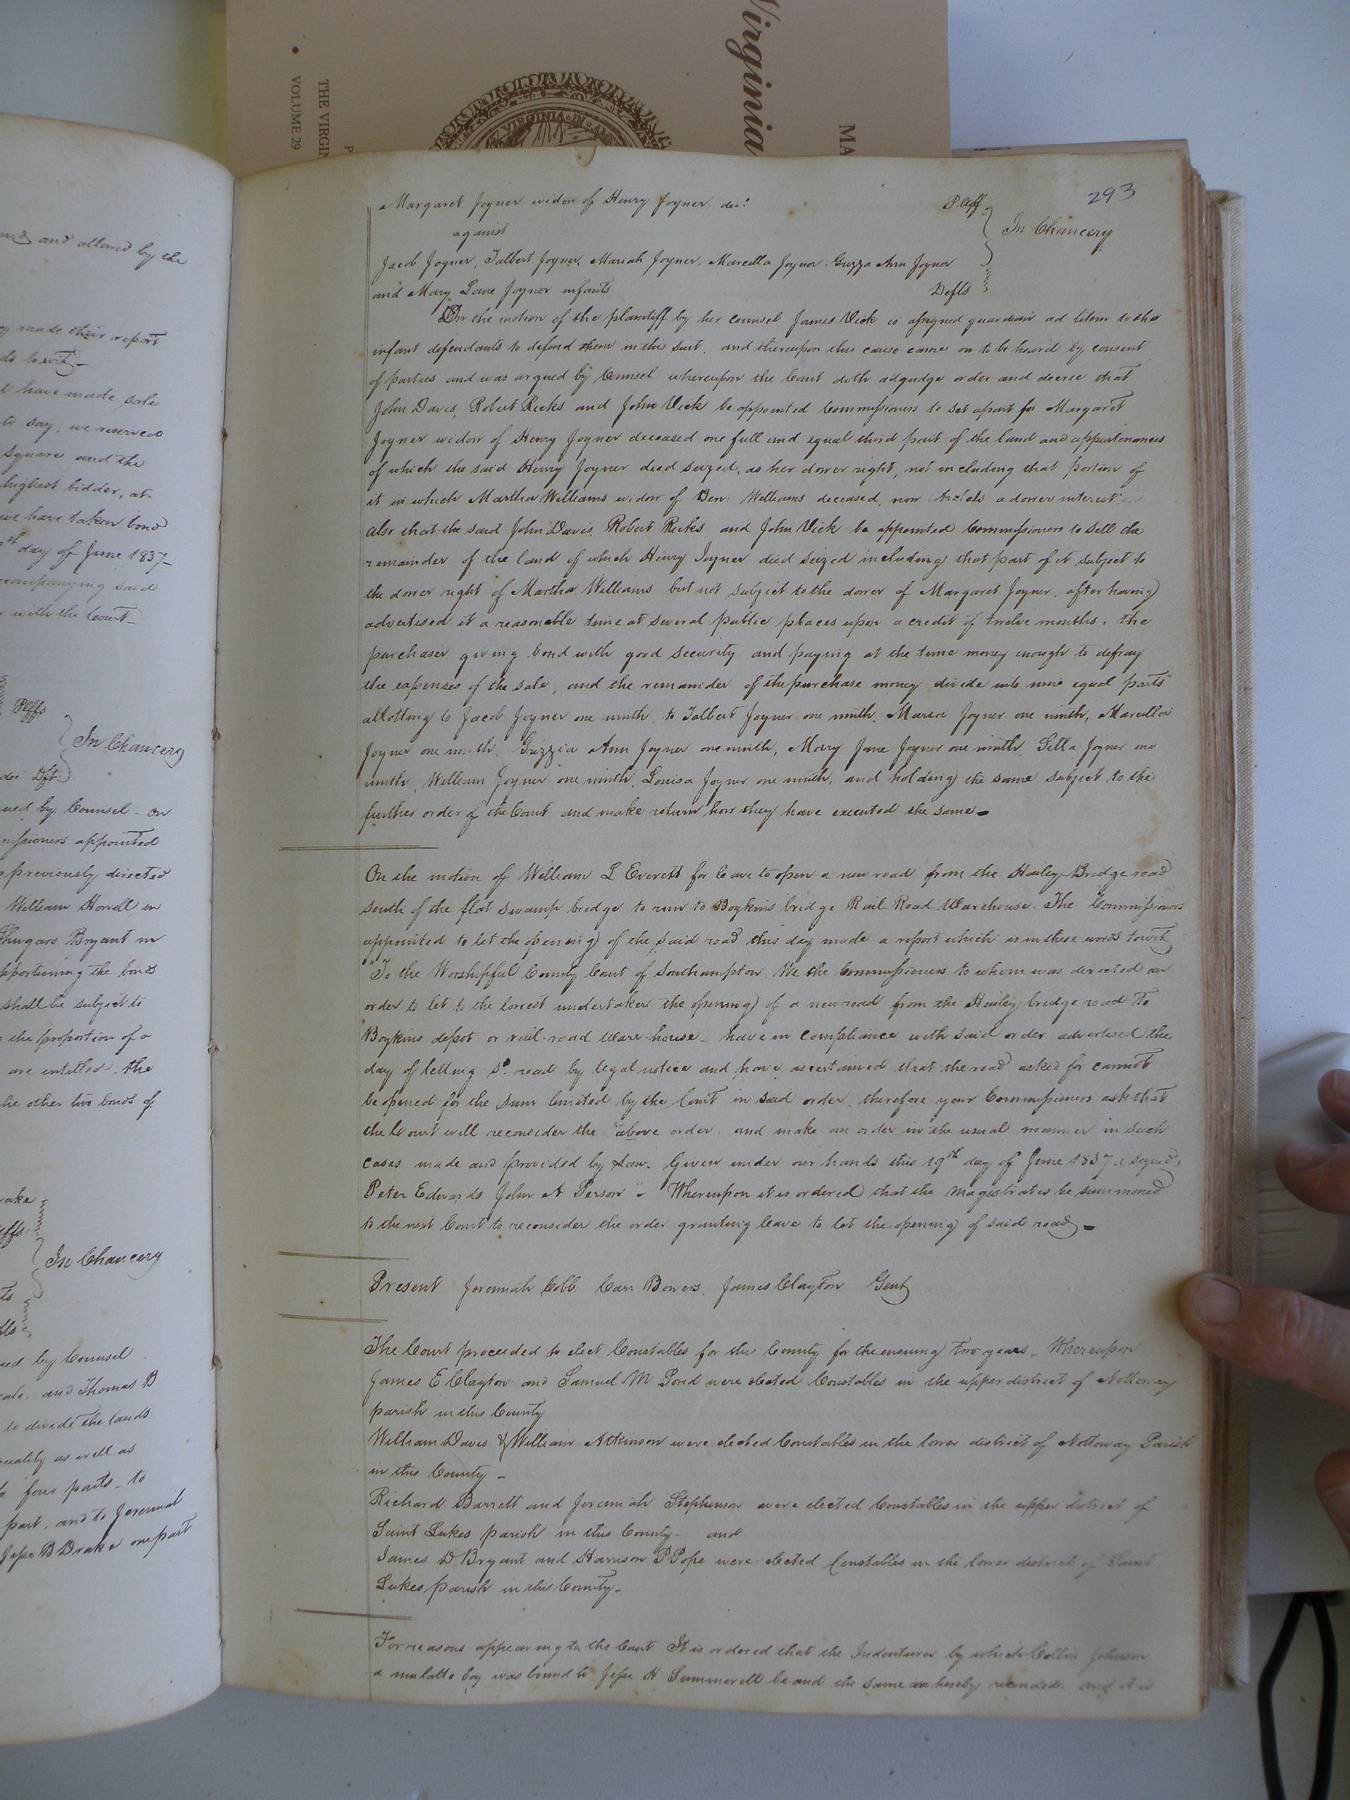 Virginia
MA
THE VIRGIN
VOLUME 29
VIRGINIA
and allowed by the
made their report
to wit
have made sale
to say, we reserved
Square and the
highest bidder, at
we have taken bond
day of June 1837
accompanying said
with the Court
Plffs
In Chancery
Dft
by Counsel - on
appointed
previously directed
William Horrell in
Bryant in
apportioning the bonds
shall be subject to
the proportion of a
are entitled, the
the other two bonds of
Plffs
In Chancery
by Counsel
and Thomas B
to divide the lands
quality as well as
four parts - to
part, and to Jeremiah
Jesse B Drake one part
293
Margaret Joyner widow of Henry Joyner dec: Plaff
against
In Chancery
Jacob Joyner, Talbert Joyner, Mariah Joyner, Marcilla Joyner, Guzza Ann Joyner
and Mary Jane Joyner infants Defts
On the motion of the plaintiff by her counsel James Vick is assigned guardian ad litem to the
infant defendants to defend them in this suit, and thereupon this cause came on to be heard by consent
of parties and was argued by Counsel whereupon the Court doth adjudge order and decree that
John Davis, Robert Ricks and John Vick be appointed Commissioners to set apart for Margaret
Joyner widow of Henry Joyner deceased one full and equal third part of the land and appurtenances
of which the said Henry Joyner died seized, as her dower right, not including that portion of
it in which Martha Williams widow of Ben: Williams deceased, now a dower interest
also that the said John Davis, Robert Ricks and John Vick be appointed Commissioners to sell the
remainder of the land of which Henry Joyner died seized including that part of it subject to
the dower right of Martha Williams but not subject to the dower of Margaret Joyner, after having
advertised it a reasonable time at several public places upon a credit of twelve months, the
purchaser giving bond with good security and paying at the time money enough to defray
the expenses of the sale, and the remainder of the purchase money divide into nine equal parts
allotting to Jacob Joyner one ninth, to Talbert Joyner one ninth, Maria Joyner one ninth, Marcilla
Joyner one ninth, Guzzia Ann Joyner one ninth, Mary Jane Joyner one ninth Silla Joyner one
ninth, William Joyner one ninth, Louisa Joyner one ninth, and holding the same subject to the
further order of the Court and make return how they have executed the same -
On the motion of William L Everett for leave to open a new road from the Haley Bridge road
south of the flat swamp bridge to run to Boykins bridge Rail Road Warehouse. The Commissioners
appointed to let the opening of the said road this day made a report which is in these words towit
"To the Worshipful County Court of Southampton We the Commissioners to whom was directed an
order to let to the lowest undertaker the opening of a new road from the Hailey bridge road to
Boykins depot or rail-road Ware-house - have in compliance with said order advertised the
day of letting sd. road by legal notice and have ascertained that the road asked for cannot
be opened for the sum limited by the Court in said order, therefore your Commissioners ask that
the Court will reconsider the above order and make an order in the usual manner in such
cases made and provided by Law. Given under our hands this 19th day of June 1837. signed,
Peter Edwards John A Person" - Whereupon it is ordered that the magistrates be summoned
to the next Court to reconsider the order granting leave to let the opening of said road -
Present Jeremiah Cobb Carr Bowers, James Clayton Gent
The Court proceeded to elect Constables for this County for the ensuing two years - Whereupon
James E Clayton and Samuel M Pond were elected Constables in the upper district of Nottoway
parish in this County
William Davis & William Atkinson were elected Constables in the lower district of Nottoway Parish
in this County -
Richard Barrett and Jeremiah Stephenson were elected Constables in the upper district of
Saint Lukes parish in this County - and
James D Bryant and Harrison P Pope were elected Constables in the lower district of Saint
Lukes parish in this County -
For reasons appearing to the Court It is ordered that the Indentures by which Collin Johnson
a mulatto boy was bound to Jesse H Summerell be and the same are hereby rescinded. and it is